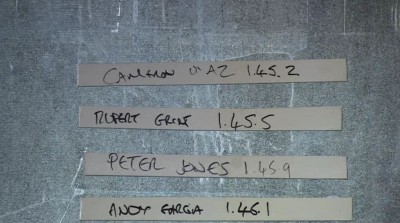 CAMERON DIAZ 1.45.2
RUPERT GRINT 1.45.5
PETER JONES 1.45.9
ANDY GARCIA 1.46.1